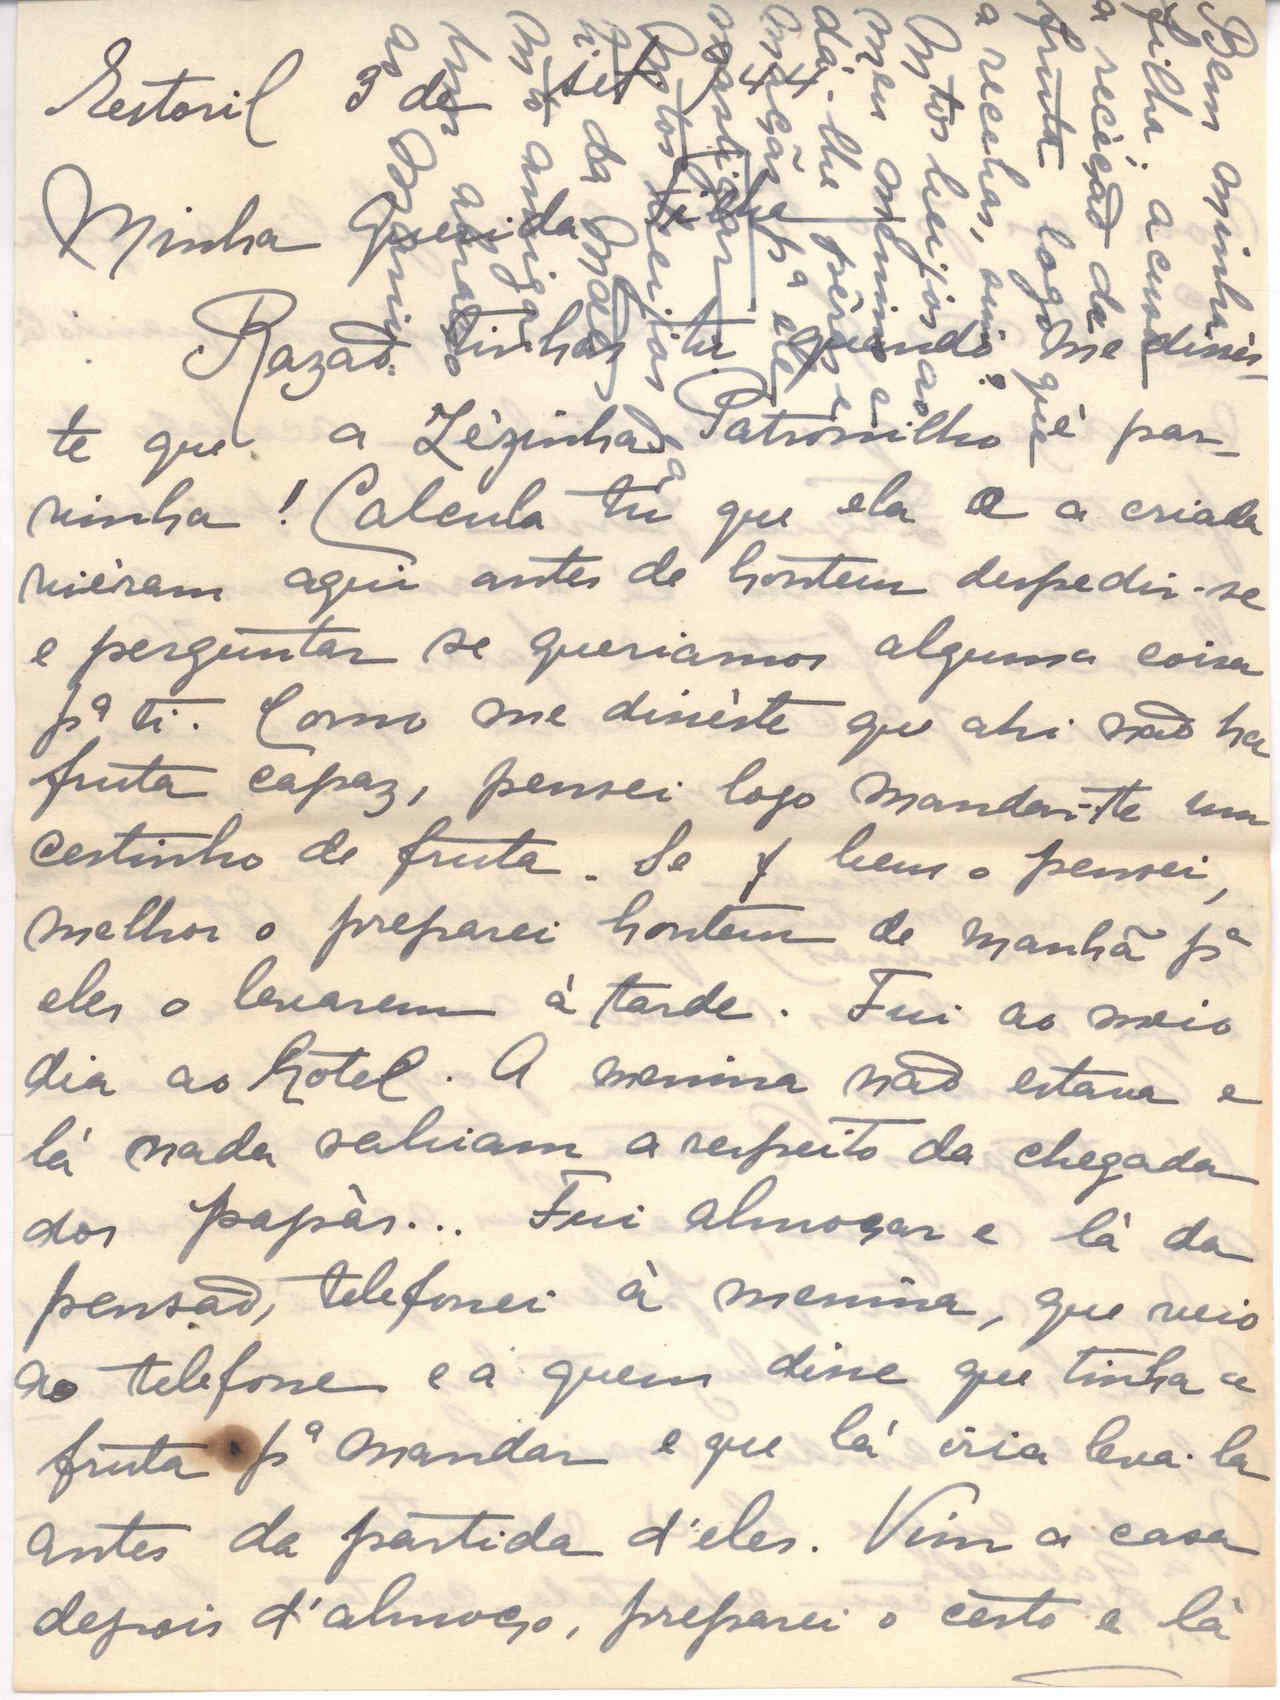 Estoril 3 de set 944
Minha Querida Filha
Razaõ tinhas tu quando me dissés-
te que a Zézinha Patronilho é par-
vinha! Calcula tú que ela e a criada
viéram aqui antes de hontem despedir-se
e perguntar se queriamos alguma coisa
pª ti. Como me disséste que ahi naõ ha
fruta capaz, pensei logo mandar-te um
cestinho de fruta. Se bem o pensei,
melhor o preparei hontem de manhã pª
eles o levarem á tarde. Fui ao meio
dia ao hotel. A menina naõ estava e
lá nada sabiam a respeito da chegada
dos papás... Fui almoçar e lá da
pensaõ, telefonei á menina, que veio
ao telefone e a quem disse que tinha a
fruta pª mandar e que lá iria leva-la
antes da partida d'eles. Vim a casa
depois d'almoço, preparei o cesto e lá
Bem minha
filha, acusa
a recéçaõ da
fruta logo que
a recebas, sim?
Mtos beijos ao
meu menino e
dá-lhe
pª ele
Mtos beijos
da Mãe
mto amiga